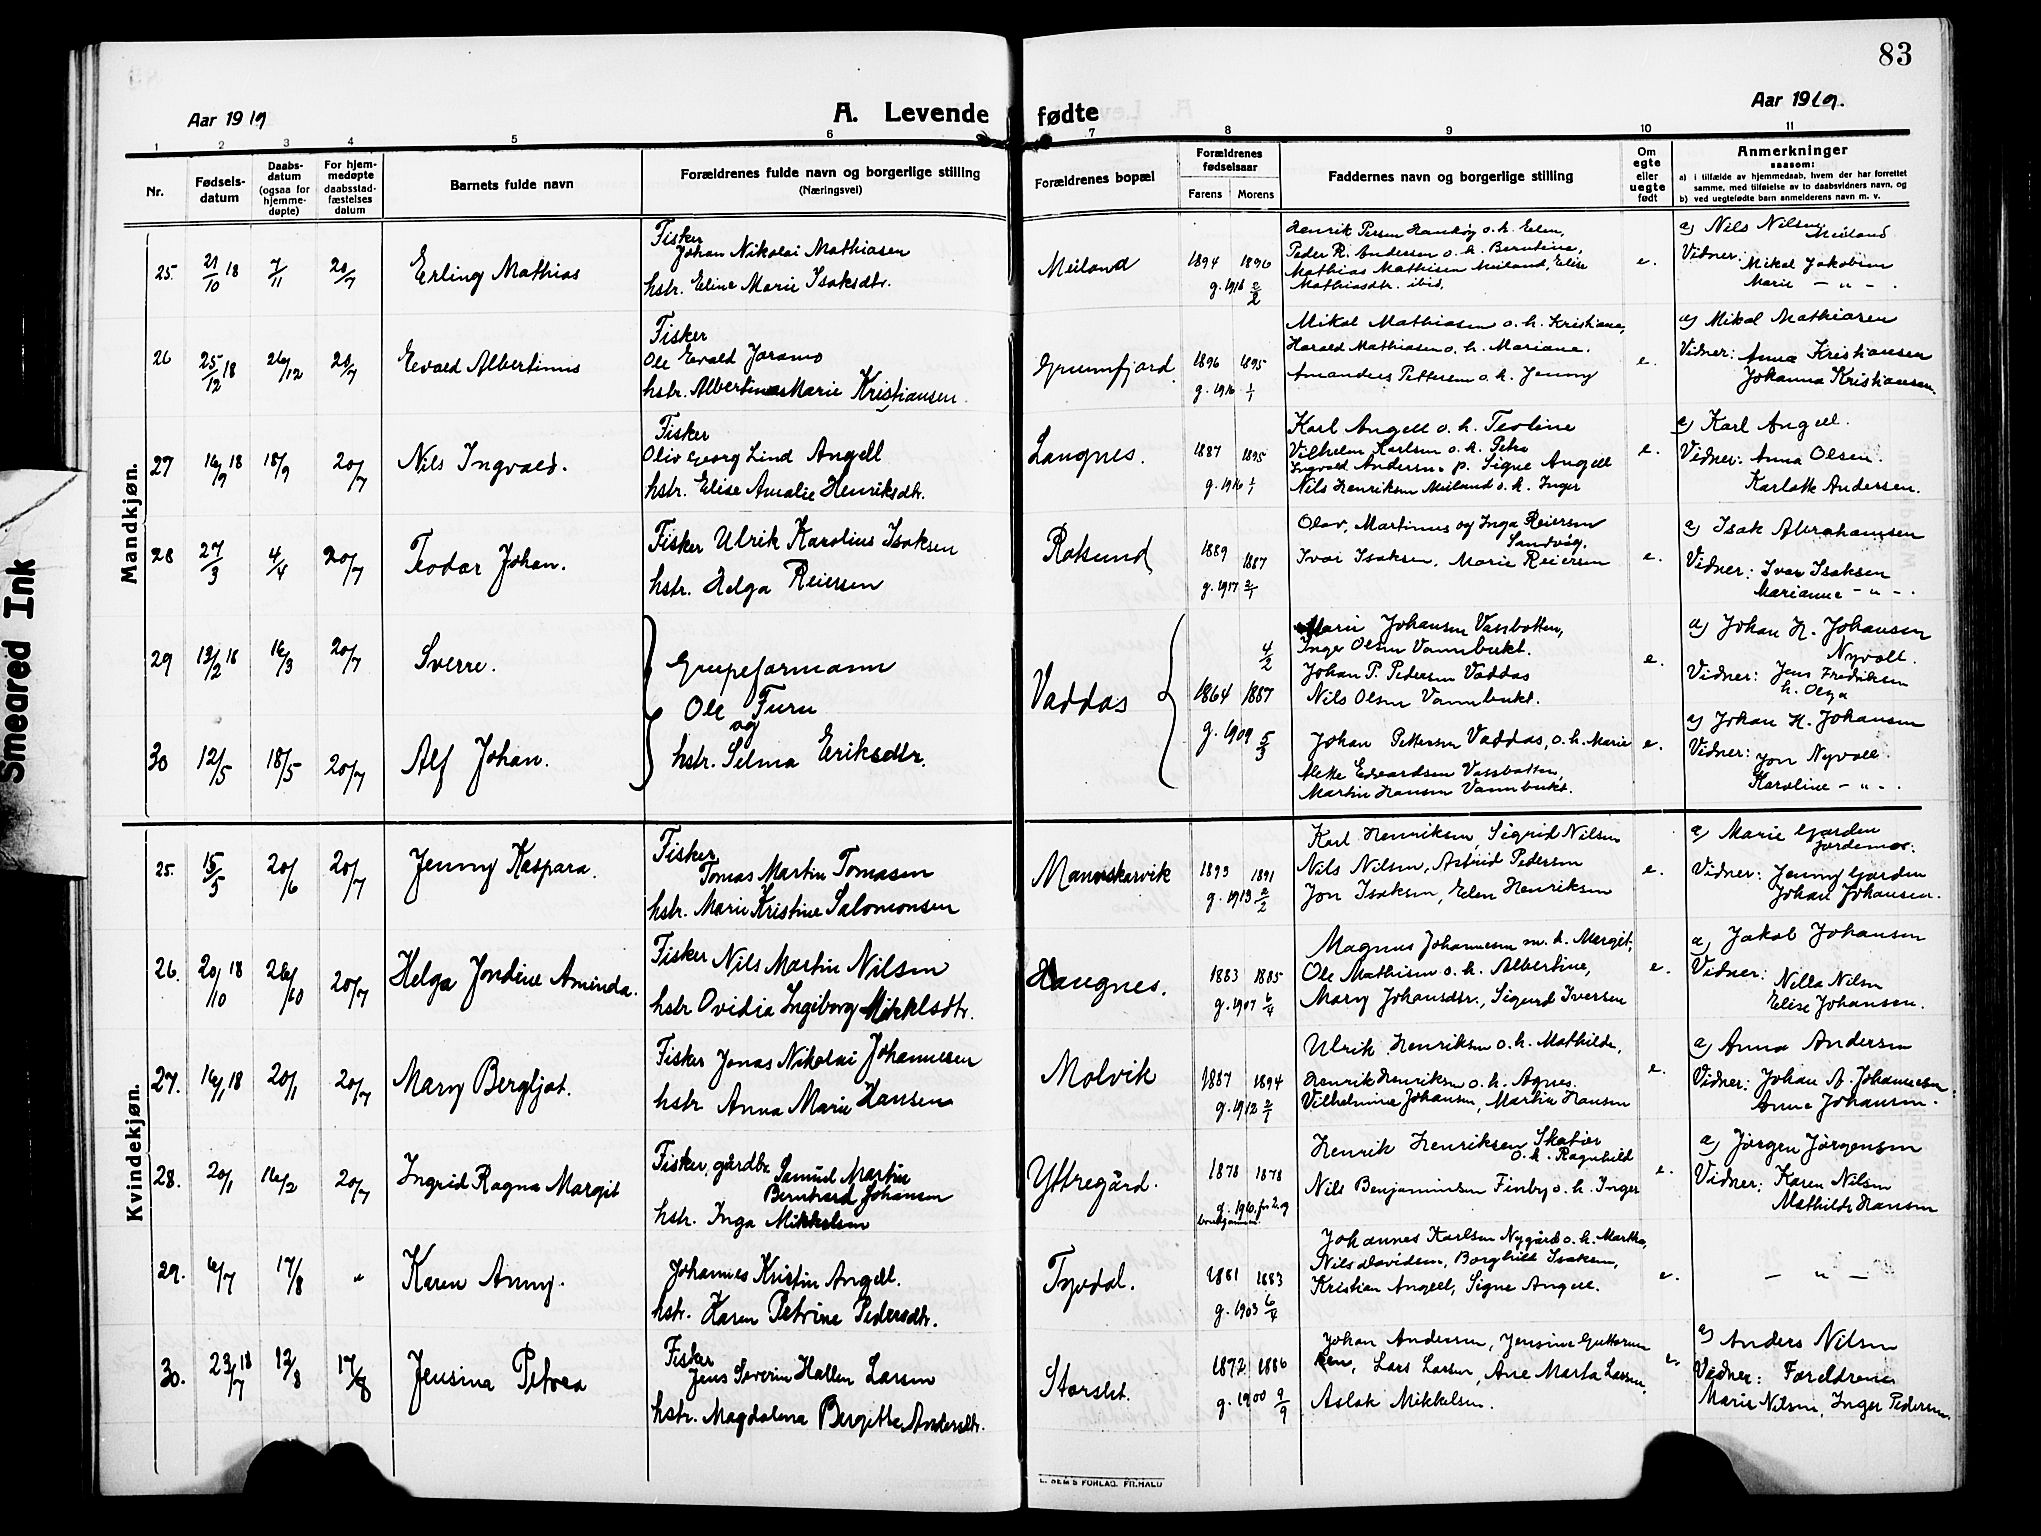 83
Aar 1919
A. Levende fødte
Aar 1919.
1 2 3 4 5 6 7 8 9 10 11
Nr.
Fødsels-
datum
Daabs-
datum
(ogsaa for
hjemme-
døpte)
For hjem-
medøpte
daabsstad-
fæstelses
datum
Barnets fulde navn
Forældrenes fulde navn og borgerlige stilling
(Næringsvei)
Forældrenes bopæl
Forældrenes
fødselsaar
Farens Morens
Faddernes navn og borgerlige stilling
Om
egte
eller
uegte
født
Anmerkninger
saasom:
a) i tilfælde av hjemmedaab, hvem der har forrettet
samme, med tilføielse av to daabsvidners navn, og
b) ved uegtefødte barn anmelderens navn m. v.
Mandkjøn.
25. 21/10 18 7/11 20/7 Erling Mathias
Fisker
Johan Nikolai Mathiasen
hstr. Eline Marie Isaksdtr.
Meiland
1894 1896
g. 1916 2/2
Peder R. Andersen o. h. Berntine,
Mathias Mathisen Meiland, Elise
Mathiasdtr. ibid.
e.
a) Nils Nilsen
Meiland
Vidner: Mikal Jakobsen
Marie — " — .
26 25/12 18 26/12 20/7 Evald Albertinus
Fisker
Ole Evald Joramo
hstr. Albertine Marie Kristiansen.
Grunnfjord.
1896 1895
g. 1916 1/1
Mikal Mathiasen o. h. Kristiane,
Harald Mathiasen o. h. Mariane.
Amandus Pettersen o. h. Jenny
e.
a) Mikal Mathiasen
Vidner: Anna Kristiansen
Johanna Kristiansen.
27 16/9 18 18/9 20/7 Nils Ingvald.
Fisker
Oliv Georg Lind Angell
hstr. Elise Amalie Henriksdtr.
Langnes.
1887 1895
g. 1916 1/1
Karl Angell o. h. Teoline
Vilhelm Karlsen o. h. Petra
Ingvald Andersen, p. Signe Angell
Nils Henriksen Meiland o. h. Inger
e.
a) Karl Angell.
Vidner: Anna Olsen.
Karlotte Andersen.
28 27/3 4/4 20/7 Teodor Johan.
Fisker Ulrik Karolius Isaksen
hstr. Helga Reiersen
Rotsund
1889 1887
g. 1917 2/1
Olav, Martinus og Inga Reiersen
Sandvåg.
Ivar Isaksen, Marie Reiersen
e.
a) Isak Abrahamsen
Vidner: Ivar Isaksen
Marianne — " — .
29 13/2 18 16/3 20/7 Sverre.
Grupeformann
Ole Furu
og
hstr. Selma Eriksdtr.
Vaddas
4/2
1864 1887
g. 1909 5/3
Marie Johansen Vassbotten,
Inger Olsen Vannbukt.
Johan P. Pedersen Vaddas
Nils Olsen Vannbukt.
e.
a) Johan H. Johansen
Nyvoll.
Vidner: Jens Fredriksen
h. Olga
30 12/5 18/5 20/7 Alf Johan.
Johan Pettersen Vaddas, o. h. Marie
Mette Edvardsen Vassbotten,
Martin Hansen Vannbukt.
e.
a) Johan H. Johansen
Vidner: Jon Nyvoll.
Karoline — " — .
Kvindekjøn.
25. 15/5 20/6 20/7 Jenny Kaspara.
Fisker
Tomas Martin Tomasen
hstr. Marie Kristine Salomonsen
Maurskarvik
1893 1891
g. 1913 2/2
Karl Henriksen, Sigrid Nilsen
Nils Nilsen, Astrid Pedersen
Jon Isaksen, Elen Henriksen
e.
a) Marie Gjærden
jordemor.
Vidner: Jenny Gjærden
Johan Johansen.
26. 20/10 18 26/10 20/7 Helga Jordine Aminda.
Fisker Nils Martin Nilsen
hstr Ovidia Ingeborg Mikkelsdtr.
Haugnes.
1883 1885
g. 1907 6/4
Magnus Johannesen m. d. Margit,
Ole Mathisen o. h. Albertine,
Mary Johansdtr., Sigurd Iversen
e.
a) Jakob Johansen
Vidner: Nella Nilsen
Elise Johansen.
27. 16/1 18 20/1 20/7 Mary Bergljot.
Fisker Jonas Nikolai Johannesen
hstr Anna Marie Hansen
Molvik
1887 1894
g. 1912 2/1
Ulrik Henriksen o. h. Mathilde,
Henrik Henriksen o. h. Agnes.
Vilhelmine Johansen, Martin Hansen
e.
a) Anna Andersen
Vidner: Johan A. Johannesen
Anne Johansen.
28. 20/1 16/2 20/7 Ingrid Ragna Margit
Fisker, gårdbr. Samuel Martin
Bernhard Johansen
hstr. Inga Mikkelsen
Yttregård.
1878 1878
Henrik Henriksen Skatør
o. h. Ragnhild
Nils Benjaminsen Finby o. h. Inger
e.
a) Jørgen Jørgensen
Vidner: Karen Nilsen
Mathilde Hansen
29. 6/7 17/8 " Karen Anny.
Johannes Kristin Angell.
hstr. Karen Petrine Pedersdtr.
1881 1883
g. 1903 6/4
Johannes Karlsen Nygård o. h. Martha,
Nils Davidsen, Borghild Isaksen,
Kristian Angell, Signe Angell.
e.
— " —
30. 23/7 18 12/8 17/8 Jensina Petrea
Fisker
Jens Severin Hallen Larsen
hstr. Magdalena Bergitte Andersdtr.
Storslet.
1872 1886
g. 1900 9/9
Johan Andersen, Jensine Guttorm
sen, Lars Larsen, Ane Marta Larsen,
Aslak Mikkelsen.
e.
a) Anders Nilsen
Vidner: Foreldrene
Marie Nilsen, Inger Pedersen.
FORLAG. FR.HALD
Smeared Ink